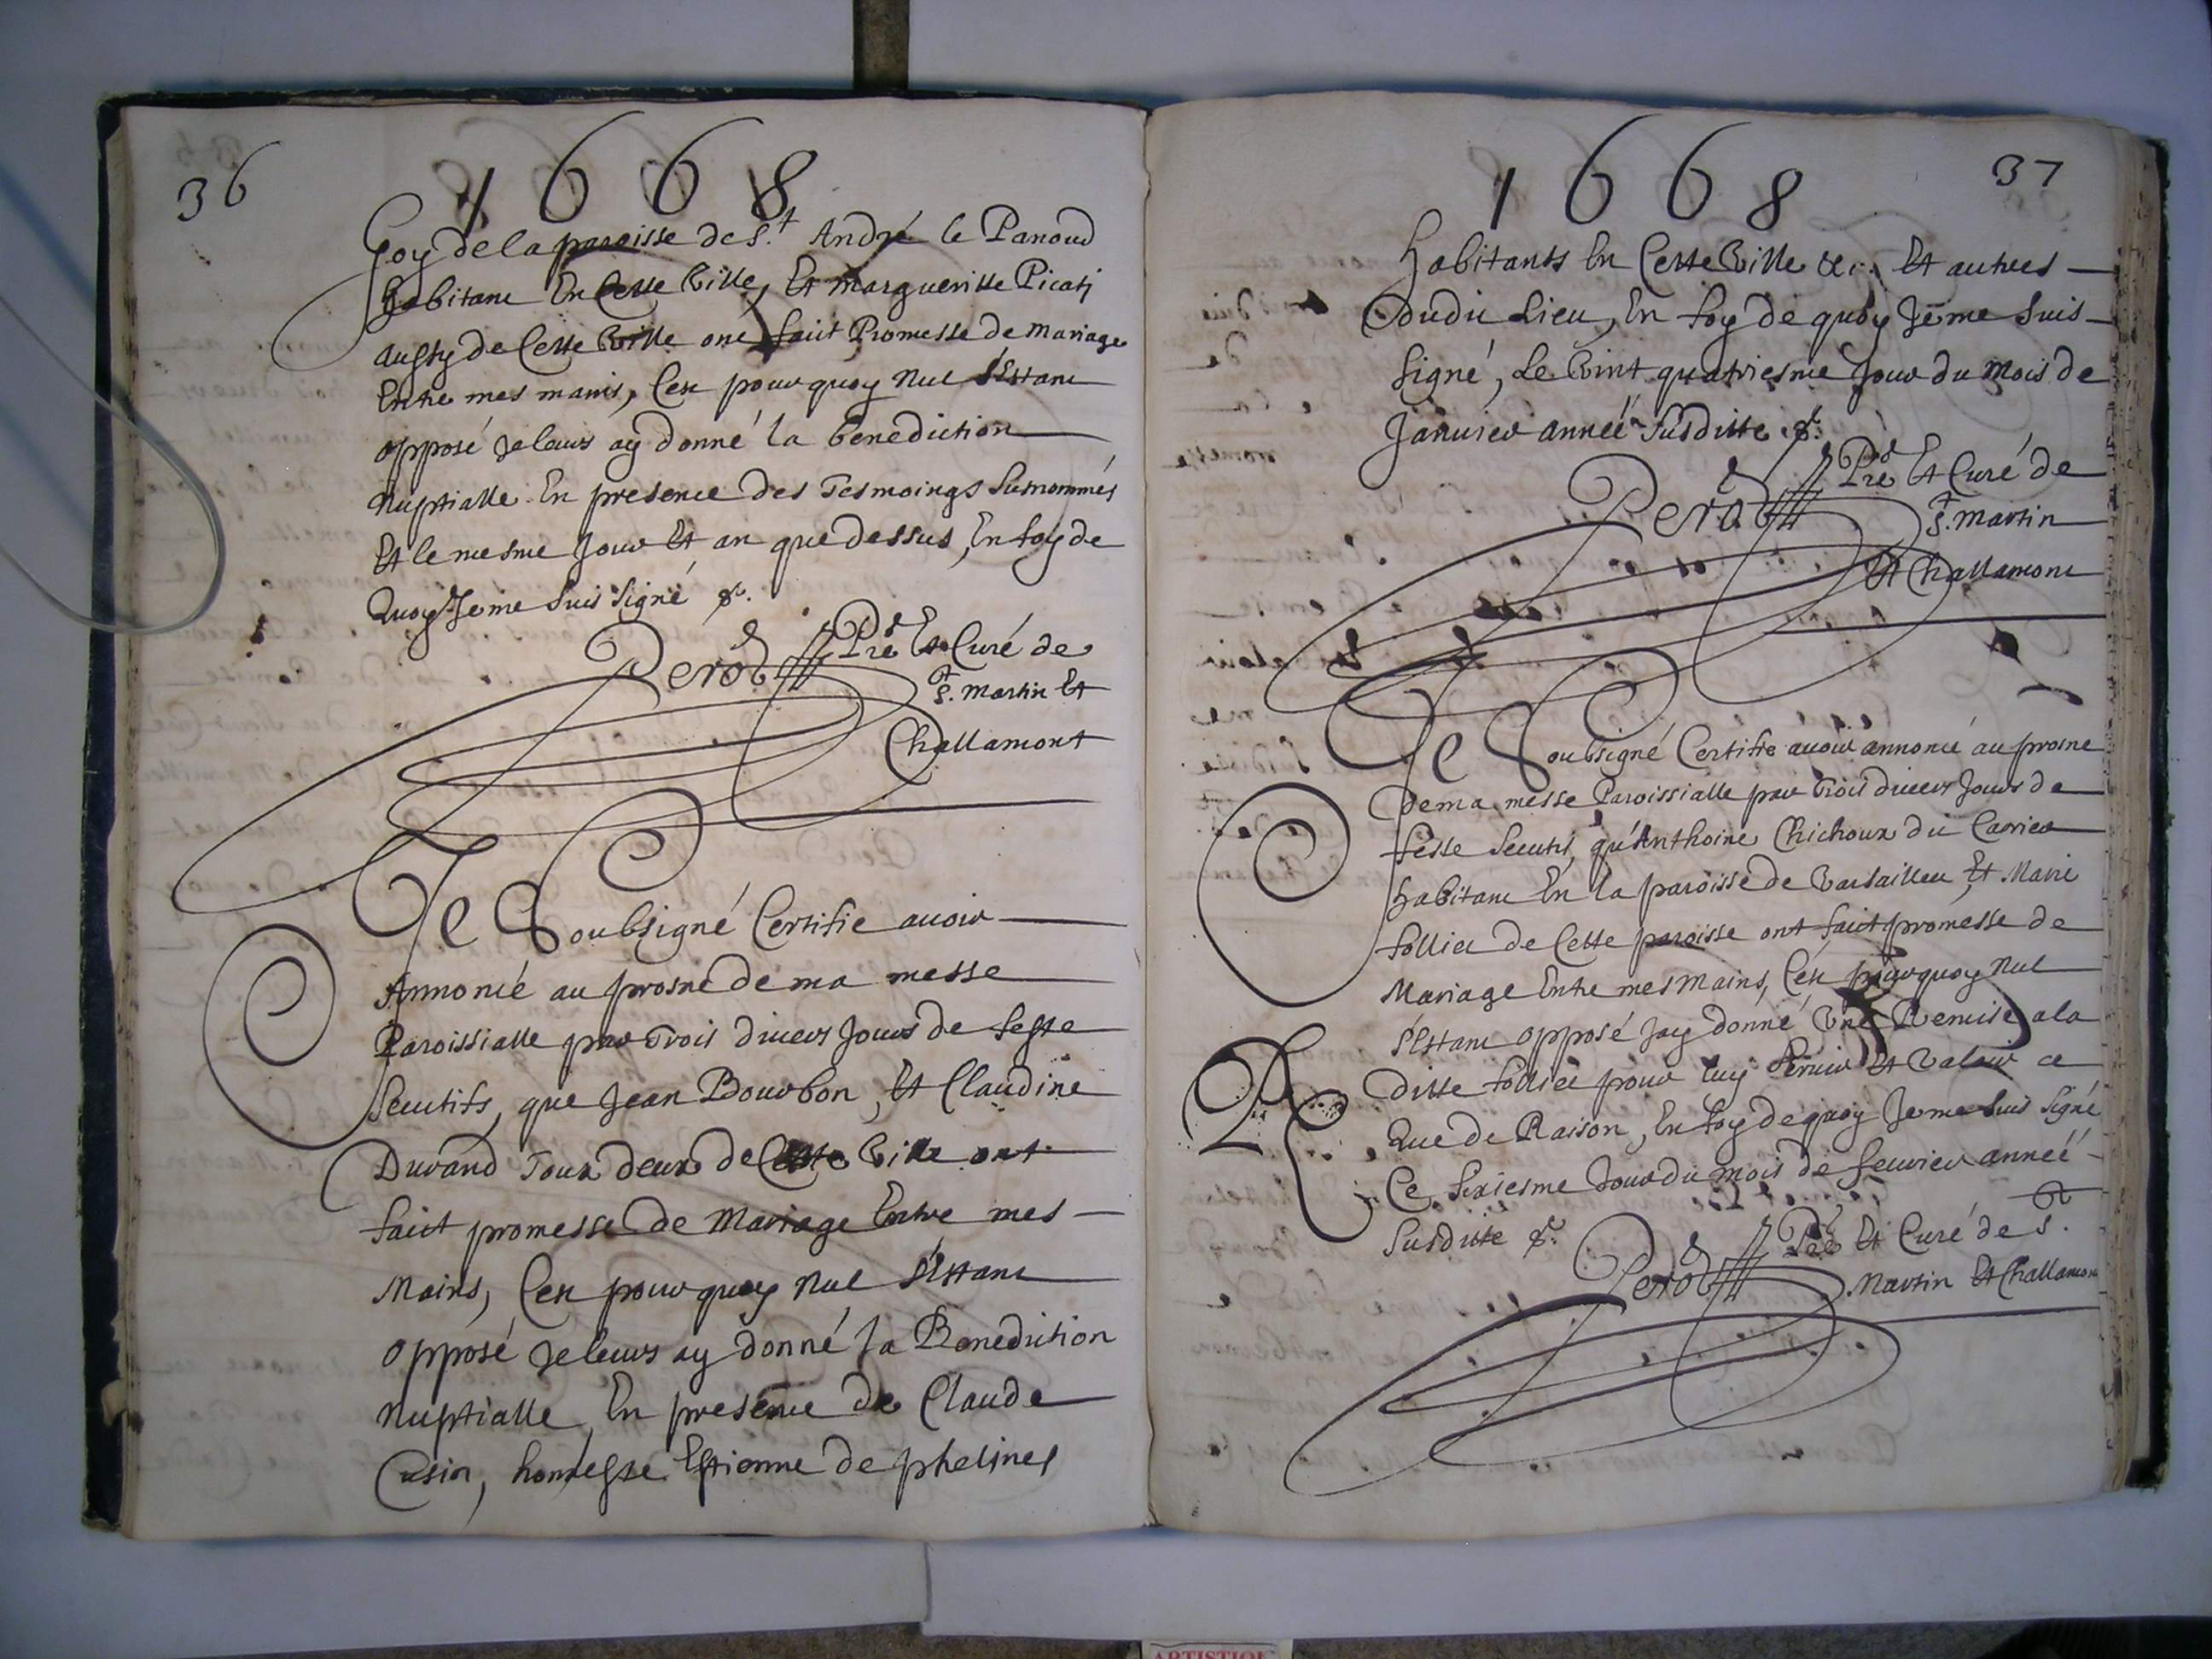 36
1668
Goy de la paroisse de S.t André le Panoud
habitant En Cette Ville, Et Margueritte Picati
Aussy de Cette Ville ont fait Promesse de Mariage
Entre mes mains, C'est pourquoy Nul s'Estant
opposé Je leurs ay donné la benediction
Nuptialle En presence des Tesmoings Susnommés
Et le mesme Jour Et an que dessus, En foy de
Quoy Je me suis signé &.
Perod Pre Et Curé de
S.t Martin Et
Challamont
Je Soubsigné Certifie avoir
Annoncé au prosne de ma messe
Paroissialle par Trois divers Jours de feste
Secutifs, que Jean Bourbon, Et Claudine
Durand Tour deux de Cette Ville ont
fait promesse de Mariage Entre mes
Mains, C'est pourquoy Nul s'Estant
opposé Je leurs ay donné la Benediction
Nuptialle, En presence de Claude
Cusin, honneste Estienne de phelines
1668
37
habitants En Cette Ville &c. Et autres
dudit Lieu, En foy de quoy Je me suis
signé, Le Vint quatriesme Jour du Mois de
Januier année susditte &.
Perod Pre Et Curé de
S.t Martin
Et Challamont
Je Soubsigné Certifie auoir annoncé au prosne
de ma messe Paroissialle par Trois diuers Jours de
feste secutifs, qu'Anthoine Chichoux du Carrier
habitant En la paroisse de Varsailleu, Et Marie
follier de Cette paroisse ont fait promesse de
Mariage Entre mes Mains, C'est pourquoy Nul
s'Estant opposé Jay donné Une Remise a la
ditte follier pour luy seruir Et Valoir ce
Que de Raison, En foy de quoy Je me suis signé
Ce sixiesme Jour du Mois de feurier année
susditte &.
Perod Pre Et Curé de S.t
Martin Et Challamont